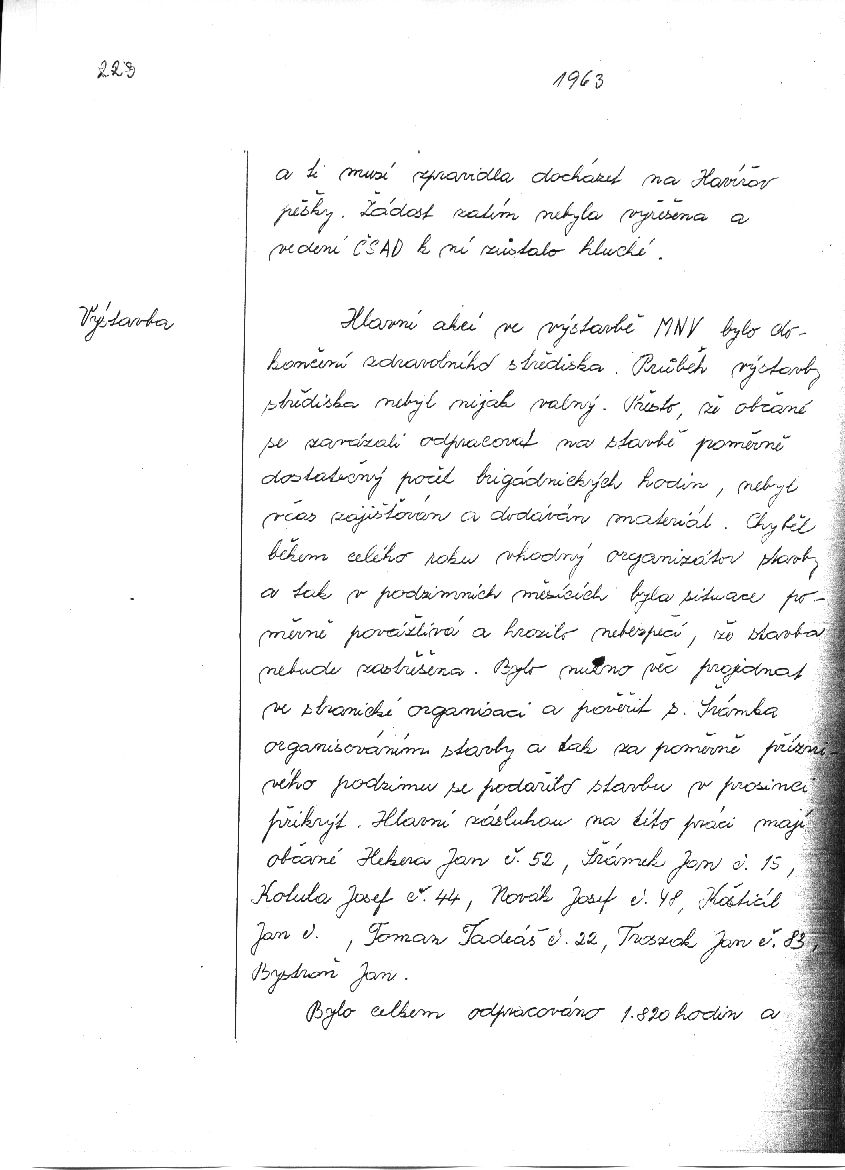 223
1963
a ti musí zpravidla docházet na Havířov
pěšky. Žádost zatím nebyla vyřešena a
vedení ČSAD k ní zůstalo hluché.
Výstavba
Hlavní akcí ve výstavbě MNV bylo do-
končení zdravotního střediska. Průběh výstavby
střediska nebyl nijak valný. Přesto, že občané
se zavázali odpracovat na stavbě poměrně
dostatečný počet brigádnických hodin, nebyl
včas zajišťován a dodáván materiál. Chyběl
během celého roku vhodný organizátor stavby
a tak v podzimních měsících byla situace po-
měrně povážlivá a hrozilo nebezpečí, že stavba
nebude zastřešena. Bylo nutno věc projednat
ve stranické organisaci a pověřit s. Šrámka
organisováním stavby a tak za poměrně přízni-
vého podzimu se podařilo stavbu v prosinci
přikrýt. Hlavní zásluhou na této práci mají
občané Hekera Jan č. 52, Šrámek Jan č. 15,
Kotula Josef č. 44, Novák Josef č. 48,
Jan č. , Toman Tadeáš č. 22, Troszok Jan č. 83,
Bystroň Jan.
Bylo celkem odpracováno 1.820 hodin a